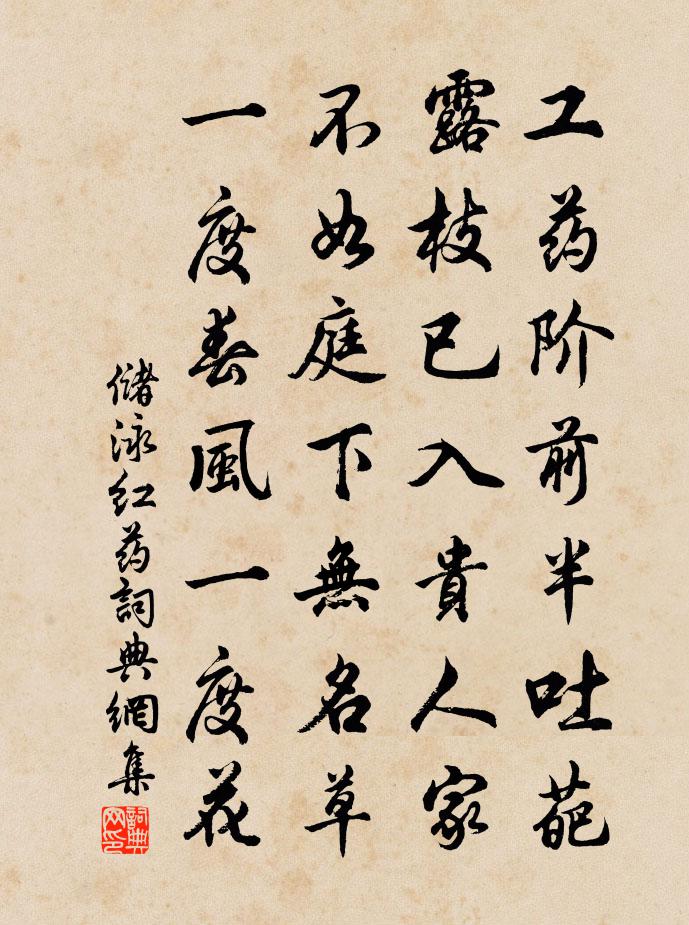 工药阶前半吐葩
露枝已入貴人家
不如庭下無名草
一度春風一度花
儲泳红药詞典網集
詞典网印